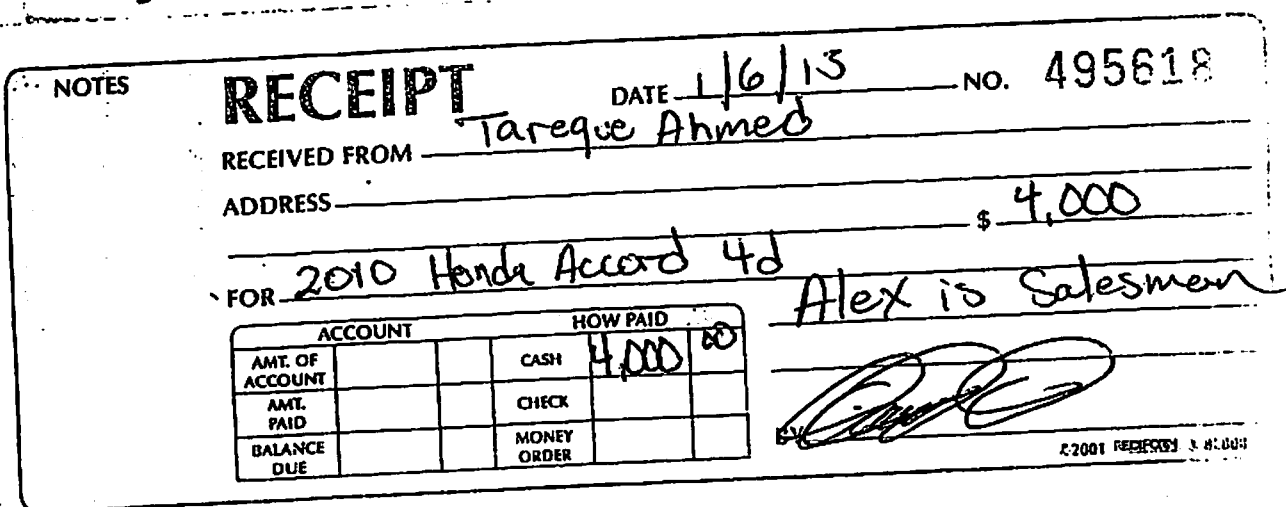 NOTES
RECEIPT
DATE 1/6/13 NO. 495618
RECEIVED FROM Tareque Ahmed
ADDRESS
$ 4,000
FOR 2010 Honda Accord 4d
Alex is Salesman
ACCOUNT HOW PAID
AMT. OF ACCOUNT CASH 4,000 00
AMT. PAID CHECK
BALANCE DUE MONEY ORDER
BY
2001